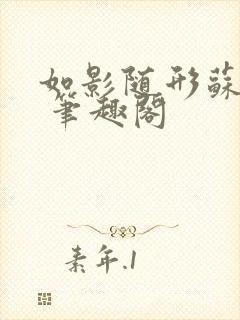 如影随形蘇
笔趣阁
素年.1